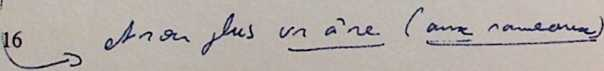 16 et non plus un âne (aux rameaux)